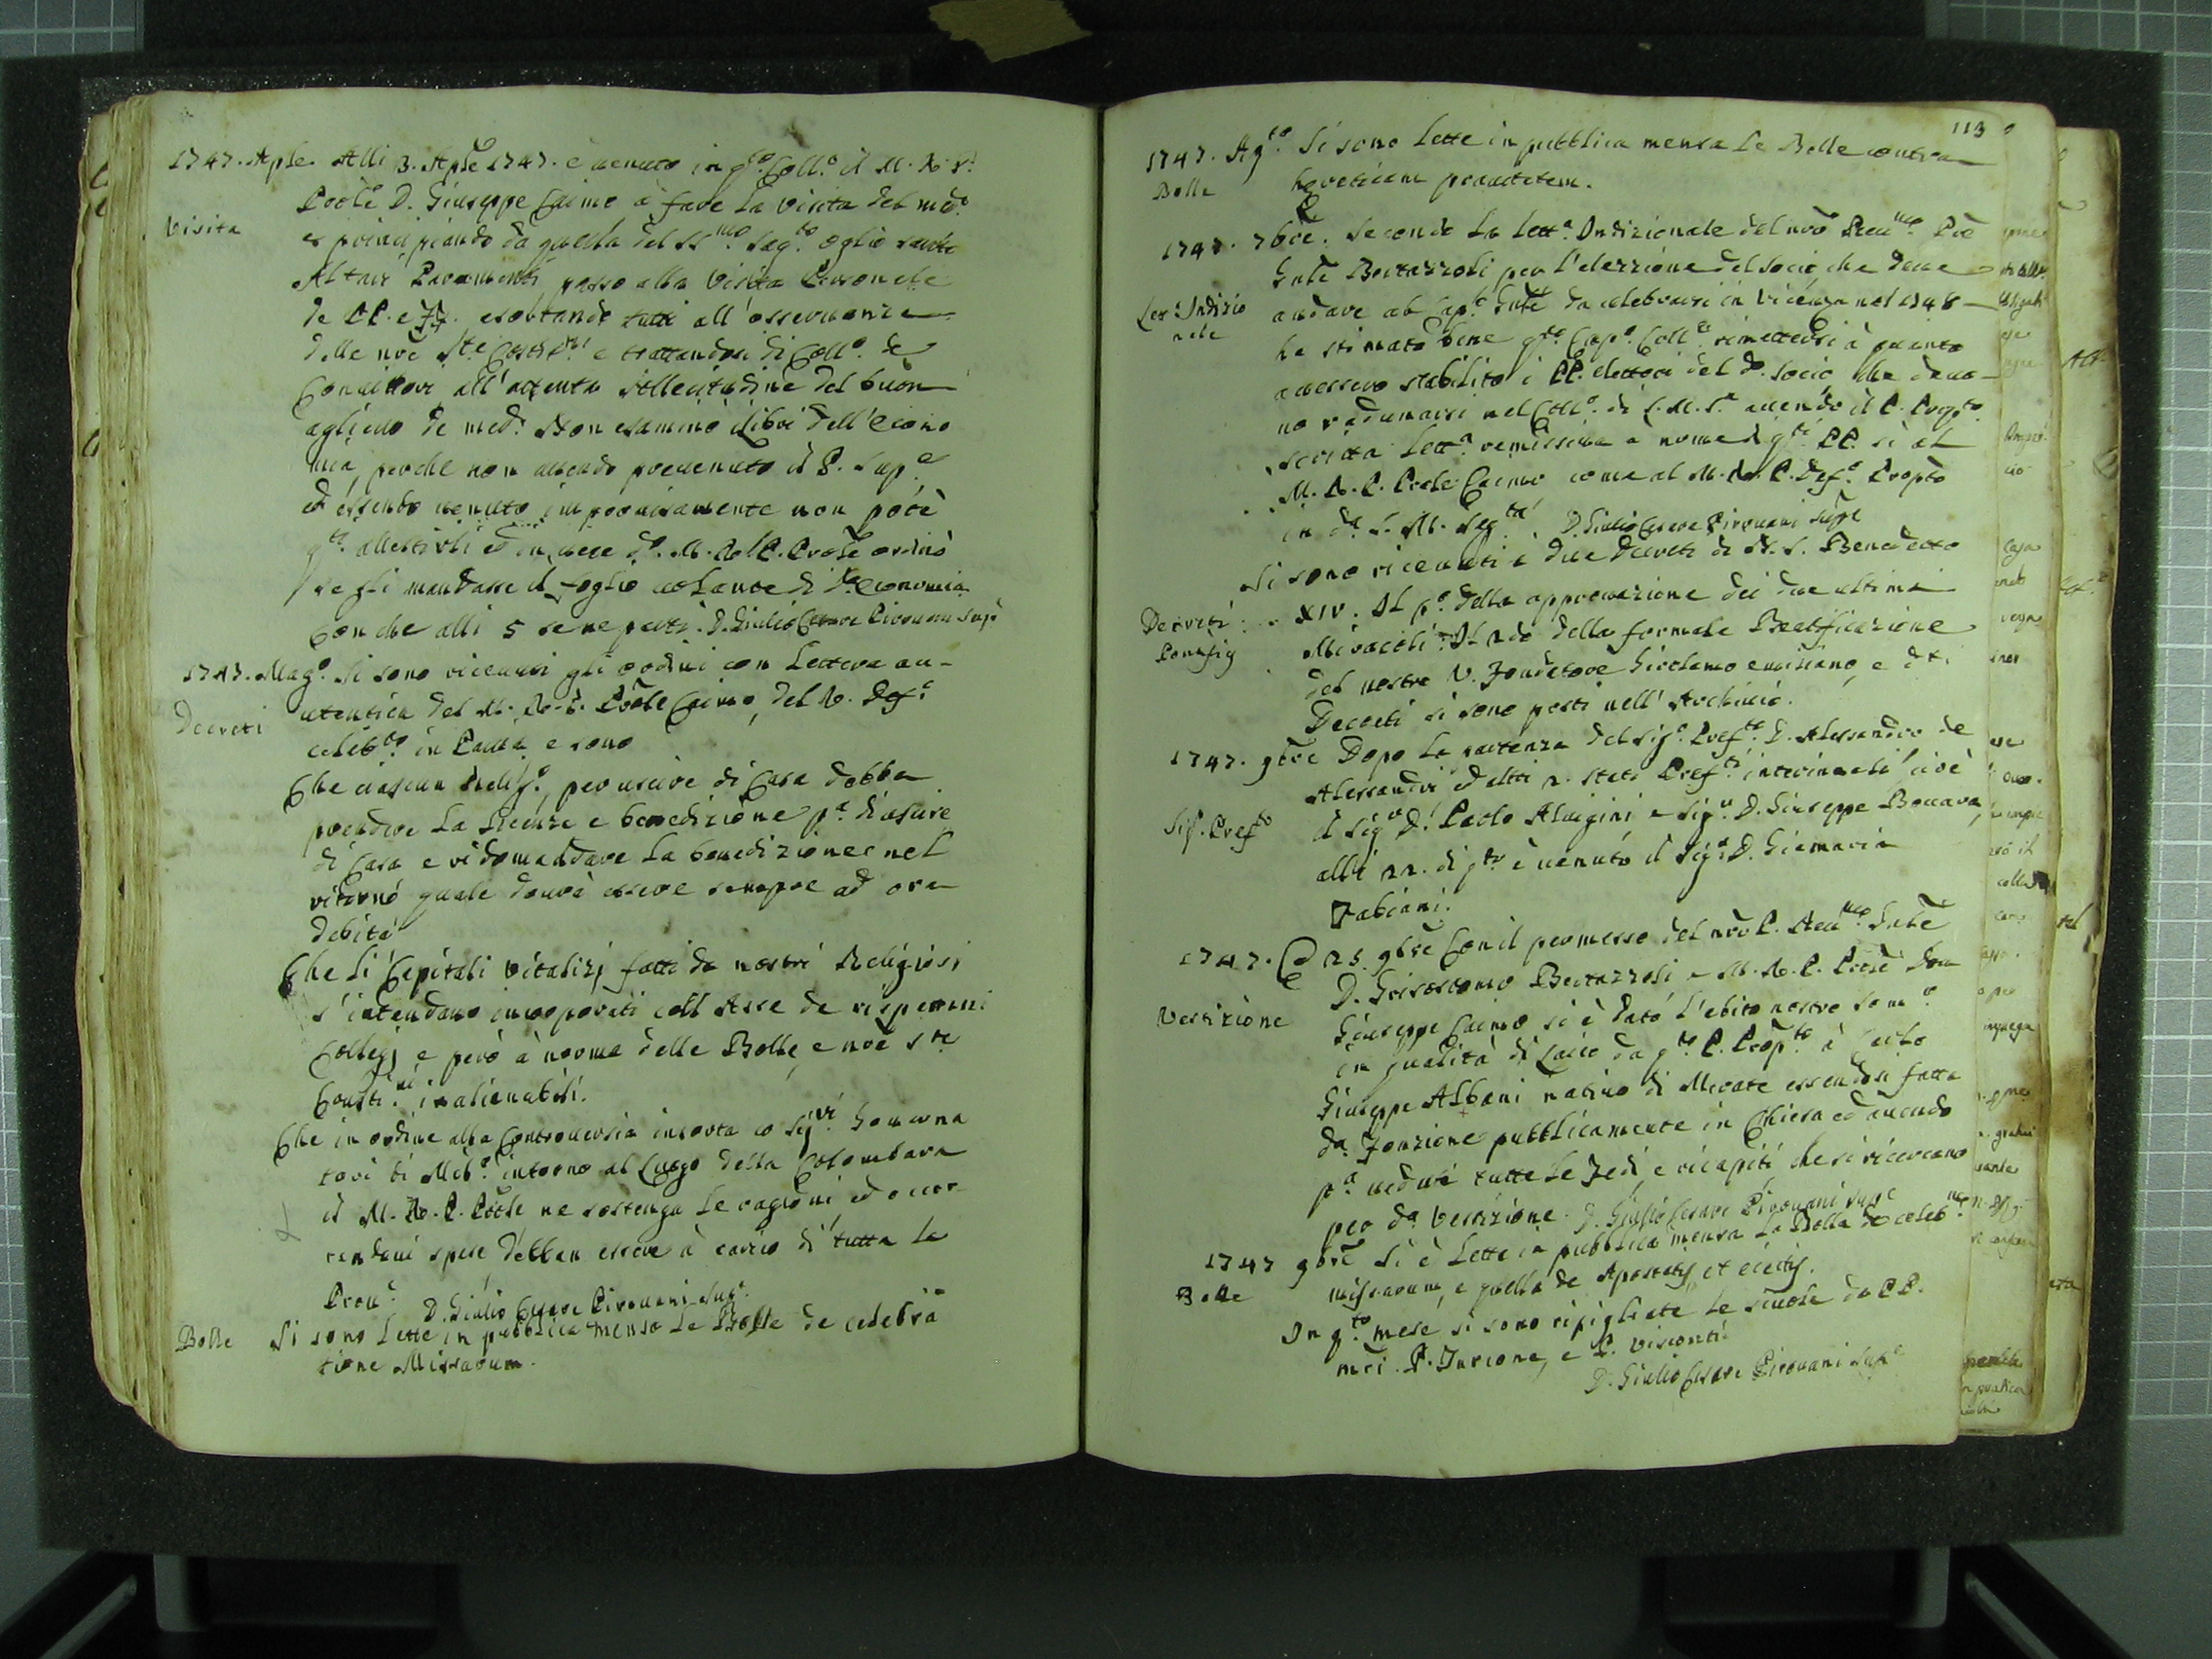 1747. Aple. Alli 3. Aple 1747. è venuto in qto. Collo. il M. R. P.
Prole D. Giuseppe Caimo à fare la visita del medo.
Visita
e principiando da quella del SSmo. Sagto. oglio santo
Altari Paramenti passo alla visita Personale
de PP. e FF. esortando tutti all'osservanza
delle nre Ste Costni. e trattandosi di Collo. de
Convittori all'attenta sollecitudine del buon
 de medi. Non esaminò i libri dell'Econo
mia, perche non avendo prevenuto il P. Supe
ed essendo venuto improvisamente non potè
qto. allestirli ed in vece do. M. R. P. Prole ordinò
se gli mandasse il foglio volante di da Economia
con che alli 5 se ne partì. D. Giulio Cesare Pirovani Supe
1747. Mago. Si sono ricevuti gli ordini con Lettera au-
Decreti
utentica del M. R. P. Prole Caimo, del R. Defo
celebto. in Pavia e sono
Che ciascun Religo. per uscire di Casa debba
prendere la licenza e benedizione pa. di uscire
di Casa e ridomandare la benedizione nel
ritorno quale dovrà essere sempre ad ora
debita
Che li Capitali vitalizj fatti da nostri Religiosi
s'intendano incorporati coll'Asse de rispettivi
Collegj e però à norma delle Bolle, e nre Ste
Costi.ni inalienabili.
Che in ordine alla Controversia insorta co Sigri. Governa
tori di Milo. intorno al Luogo della Colombara
il M. R. P. Prole ne sostenga le ragioni ed occor
rendovi spese debban essere à carico di tutta la
Prova.
D. Giulio Cesare Pirovani Supe.
Bolle Si sono Lette in pubblica mensa le Bolle de celebra
tione Missarum.
113
1747. Agto. Si sono lette in pubblica mensa le Bolle contra
Bolle
hereticam pravitatem.
1747. 7bre. Secondo la Letta. Indizionale del nro Revmo. Pre
Gnle Bertazzoli per l'elezzione del Socio che deve
Let. Indizio
nale
andare al Capo. Gnle da celebrarsi in Vicenza nel 1748
ha stimato bene qto. Capo. Colle. rimettersi à quanto
avessero stabilito i PP. elettori del do. Socio che deva-
no radunarsi nel Collo. di S. M. Sa. avendo il P. Propto
scritta Letta. remissiva à nome di qti PP. sì al
M. R. P. Prole Caimo come al M. R. P. Defe. Propto
in da S. M. Segta. D. Giulio Cesare Pirovani Supe
Si sono ricevuti i due Decreti di N. S. Benedetto
Decreti
Pontifig
XIV. Il po. della approvazione dei due ultimi
Miracoli. Il 2do della formale Beatificazione
del nostro V. Fondatore Girolamo emiliano, e dti
Decreti si sono posti nell'Archivio.
1747. 9bre Dopo la partenza del Sigr. Prefto. D. Alessandro de
Alessandri ed altri 2. stati Prefti. interinali, cioè
Sigr. Prefto
il Sigr D. Paolo Aluigini e Sigr. D. Giuseppe Bonara,
alli 22. di qto è venuto il Sigr D. Giamaria
Fabiani.
1747. 25 9bre Con il permesso del nro P. Revmo. Gnle
D. Grisostomo Bertazzoli e M. R. P. Prole Don
Vestizione
Giuseppe Caimo si è dato l'abito nostro Somo
in qualità di Laico da qto. P. Propto à Carlo
Giuseppe Albani nativo di Merate essendosi fatta
da Fonzione pubblicamente in Chiesa ed avendo
pa. veduti tutte le Fedi, e ricapiti che si ricercano
per da Vestizione. D. Giulio Cesare Pirovani Supe
1747 9bre Si è Letta in pubblica mensa la Bolla de celebne
Bolle
missarum, e quella de Apostatis, et eiectis.
In qto mese si sono ripigliate le scuole da PP.
mri. P. Turione, e P. Visconti
D. Giulio Cesare Pirovani Supe